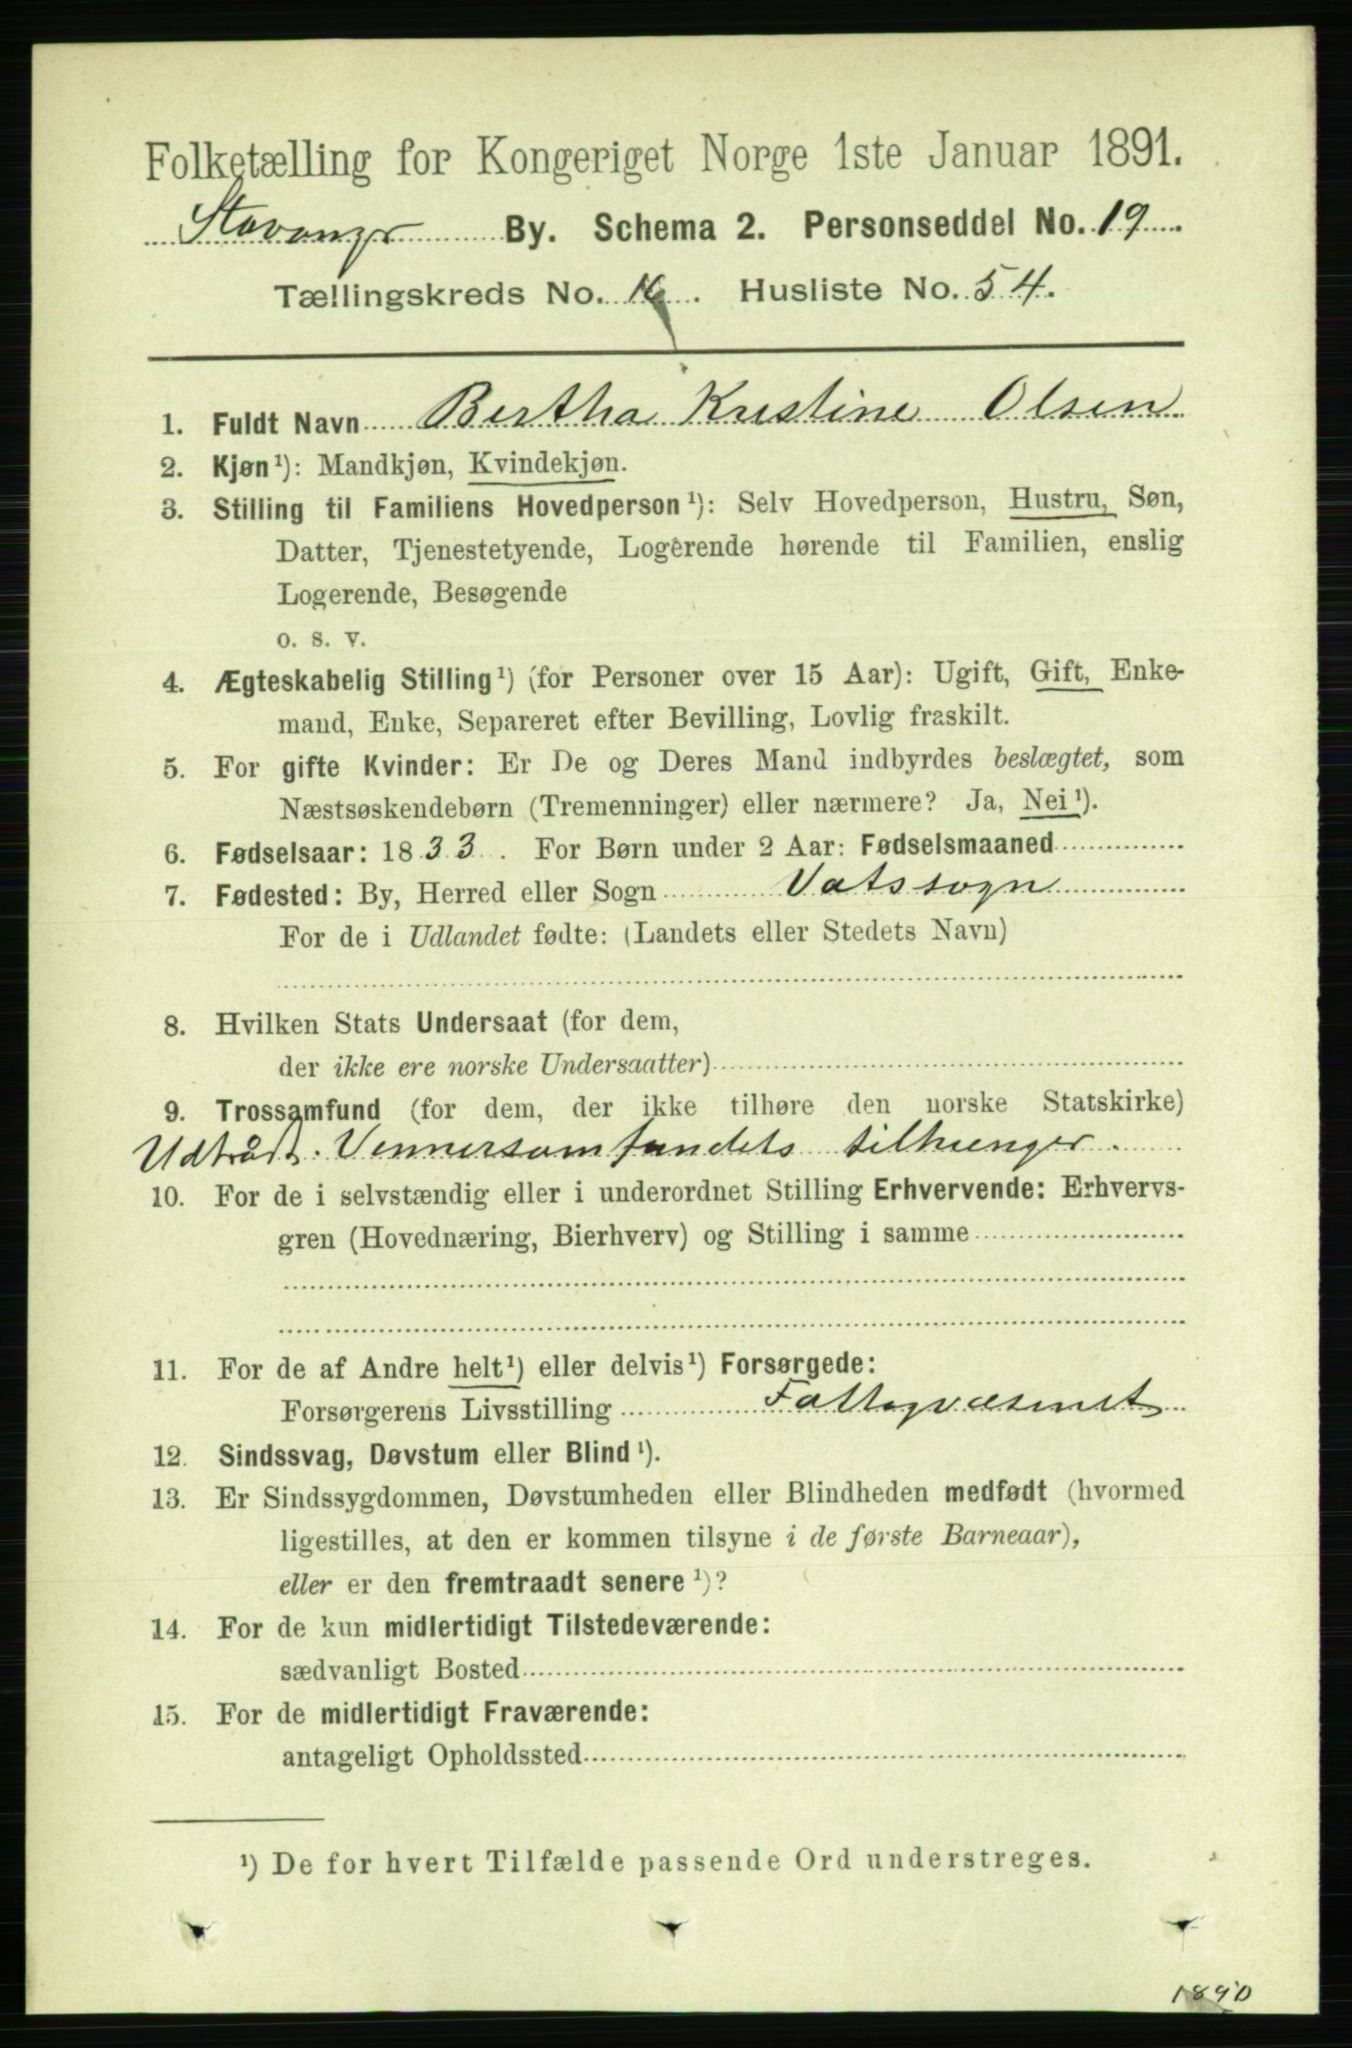 Folketælling for Kongeriget Norge 1ste Januar 1891.
Stavanger By. Schema 2. Personseddel No. 19.
Tællingskreds No. 16. Husliste No. 54.
1. Fuldt Navn Bertha Kristine Olsen
2. Kjøn¹): Mandkjøn, Kvindekjøn.
3. Stilling til Familiens Hovedperson¹): Selv Hovedperson, Hustru, Søn,
Datter, Tjenestetyende, Logerende hørende til Familien, enslig
Logerende, Besøgende
o. s. v.
4. Ægteskabelig Stilling¹) (for Personer over 15 Aar): Ugift, Gift, Enke-
mand, Enke, Separeret efter Bevilling, Lovlig fraskilt.
5. For gifte Kvinder: Er De og Deres Mand indbyrdes beslægtet, som
Næstsøskendebørn (Tremenninger) eller nærmere? Ja, Nei¹).
6. Fødselsaar: 1833. For Børn under 2 Aar: Fødselsmaaned
7. Fødested: By, Herred eller Sogn Vatssogn
For de i Udlandet fødte: (Landets eller Stedets Navn)
8. Hvilken Stats Undersaat (for dem,
der ikke ere norske Undersaatter)
9. Trossamfund (for dem, der ikke tilhøre den norske Statskirke)
Udtrådt. Vennersamfundets tilhænger.
10. For de i selvstændig eller i underordnet Stilling Erhvervende: Erhvervs-
gren (Hovednæring, Bierhverv) og Stilling i samme
11. For de af Andre helt¹) eller delvis¹) Forsørgede:
Forsørgerens Livsstilling Fattigvæsenet
12. Sindssvag, Døvstum eller Blind¹).
13. Er Sindssygdommen, Døvstumheden eller Blindheden medfødt (hvormed
ligestilles, at den er kommen tilsyne i de første Barneaar),
eller er den fremtraadt senere¹)?
14. For de kun midlertidigt Tilstedeværende:
sædvanligt Bosted
15. For de midlertidigt Fraværende:
antageligt Opholdssted
¹) De for hvert Tilfælde passende Ord understreges.
1890